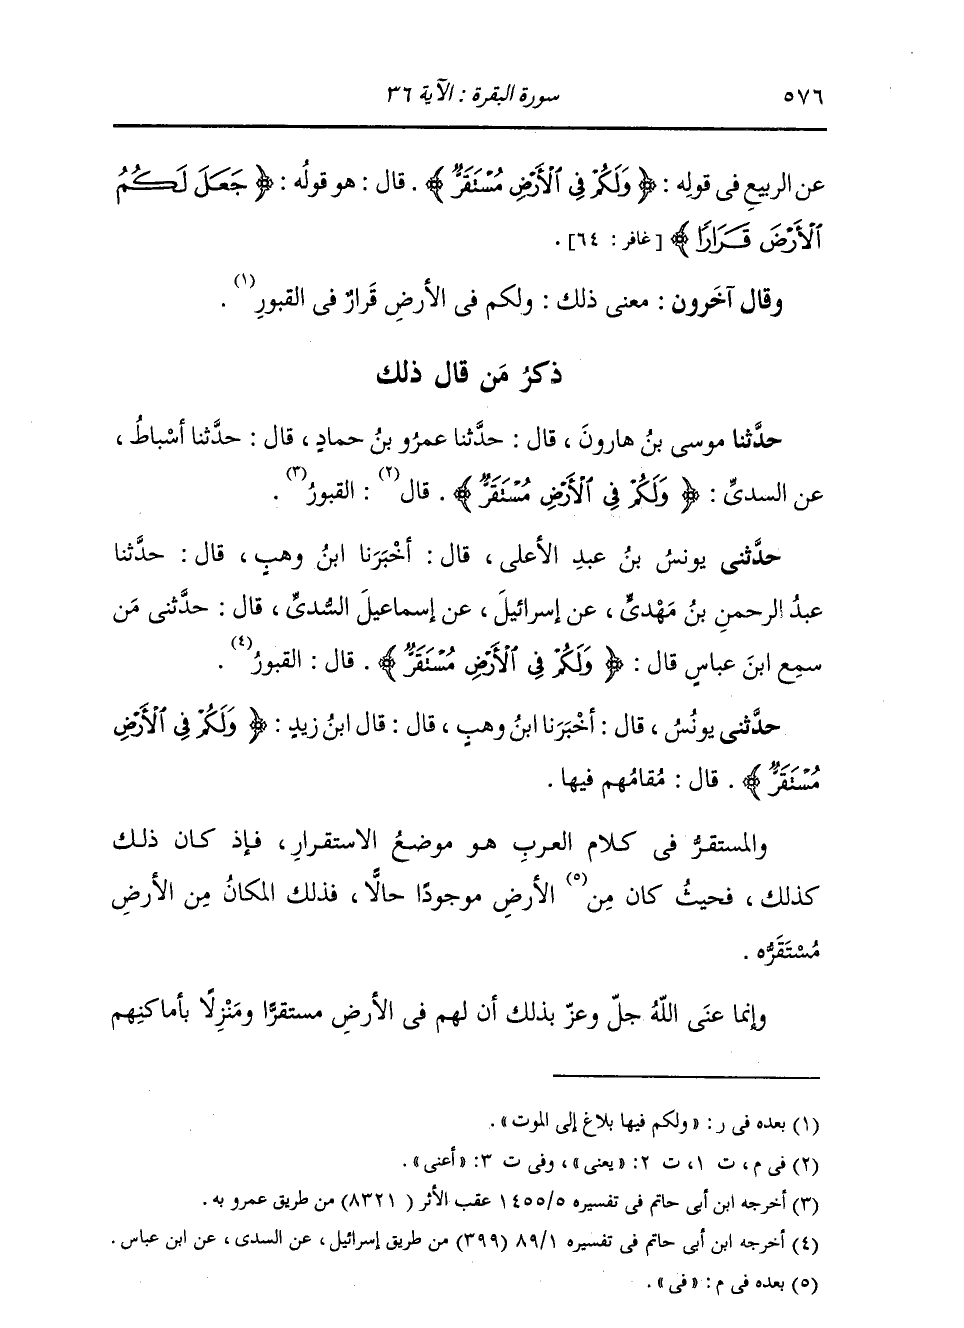 ٥٧٦ سورة البقرة : الآية ٣٦
عن الربيعِ فى قولِه : ﴿ وَلَكُمْ فِي الْأَرْضِ مُسْتَقَرٌّ ﴾ . قال : هو قولُه : ﴿ جَعَلَ لَكُمُ
الْأَرْضَ قَرَارًا ﴾ [ غافر : ٦٤] .
وقال آخَرون : معنى ذلك : ولكم فى الأرضِ قَرارٌ فى القبورِ(١) .
ذكرُ مَن قال ذلك
حدَّثنا موسى بنُ هارونَ ، قال : حدَّثنا عمرُو بنُ حمادٍ ، قال : حدَّثنا أسْباطُ ،
عن السدىِّ : ﴿ وَلَكُمْ فِي الْأَرْضِ مُسْتَقَرٌّ ﴾ . قال(٢) : القبورُ(٣) .
حدَّثنى يونسُ بنُ عبدِ الأعلى ، قال : أخْبَرَنا ابنُ وهبٍ ، قال : حدَّثنا
عبدُ الرحمنِ بنُ مَهْدىٍّ ، عن إسرائيلَ ، عن إسماعيلَ السُّدىِّ ، قال : حدَّثنى مَن
سمِع ابنَ عباسٍ قال : ﴿ وَلَكُمْ فِي الْأَرْضِ مُسْتَقَرٌّ ﴾ . قال : القبورُ(٤) .
حدَّثنى يونُسُ ، قال : أخْبَرَنا ابنُ وهبٍ ، قال : قال ابنُ زيدٍ : ﴿ وَلَكُمْ فِي الْأَرْضِ
مُسْتَقَرٌّ ﴾ . قال : مُقامُهم فيها .
والمستقرُّ فى كلامِ العربِ هو موضعُ الاستقرارِ ، فإذ كان ذلك
كذلك ، فحيثُ كان مِن(٥) الأرضِ موجودًا حالًّا ، فذلك المكانُ مِن الأرضِ
مُسْتَقَرُّه .
وإنما عنَى اللَّهُ جلّ وعزّ بذلك أن لهم فى الأرضِ مستقرًّا ومَنْزِلًا بأماكنِهم
(١) بعده فى ر : « ولكم فيها بلاغ إلى الموت » .
(٢) فى م ، ت ١، ت ٢: « يعنى » ، وفى ت ٣: « أعنى » .
(٣) أخرجه ابن أبى حاتم فى تفسيره ١٤٥٥/٥ عقب الأثر ( ٨٣٢١) من طريق عمرو به .
(٤) أخرجه ابن أبى حاتم فى تفسيره ٨٩/١ (٣٩٩) من طريق إسرائيل ، عن السدى ، عن ابن عباس .
(٥) بعده فى م : « فى » .